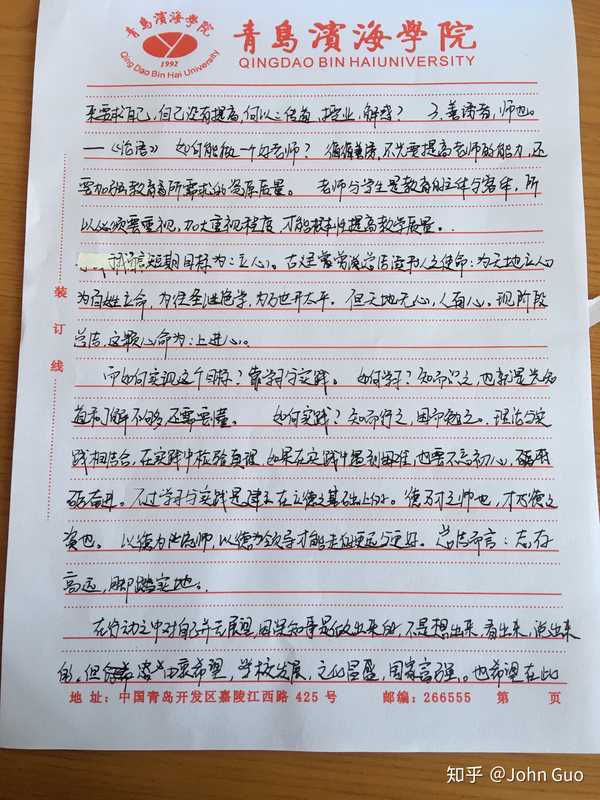 青島濱海學院
Qing Dao Bin Hai University
1992
青島濱海學院
QINGDAO BIN HAIUNIVERSITY
来要求自己,自己没有提高,何以传道,授业,解惑? 3.善诱者,师也。
——《论语》 如何能做一个好老师? 循循善诱,不光要提高老师的能力,还
要加强教育者所要求的资源质量。 老师与学生是教育的主体与客体,所
以必须要重视,加大重视程度,才能根本性提高教学质量。
短期目标为:立心。古建总结读书人之使命:为天地立心
为百姓立命,为往圣继绝学,为万世开太平。但天地无心,人有心。现阶段
总结,这颗心命为:上进心。
而如何实现这个目标?靠学习与实践。 如何学习?知而识之,也就是光知
道和了解不够,还需要懂。 如何实践?知而行之,困而勉之。理论与实
践相结合,在实践中检验真理,如果在实践中遇到困难,也要不忘初心,砥砺
奋进。不过学习与实践是建立在立德之基础上的。德乃才之帅也,才乃德之
资也。 以德为先师,以德为领导才能走的更远与更好。总结而言:志存
高远,脚踏实地。
在行动之中对自己并无展望,因深知事是做出来的,不是想出来,看出来,说出来
的,但由衷希望,学校发展,文化昌盛,国家富强。也希望在此
装订线
地 址:中国青岛开发区嘉陵江西路 425 号 邮编:266555 第 页
知乎 @John Guo